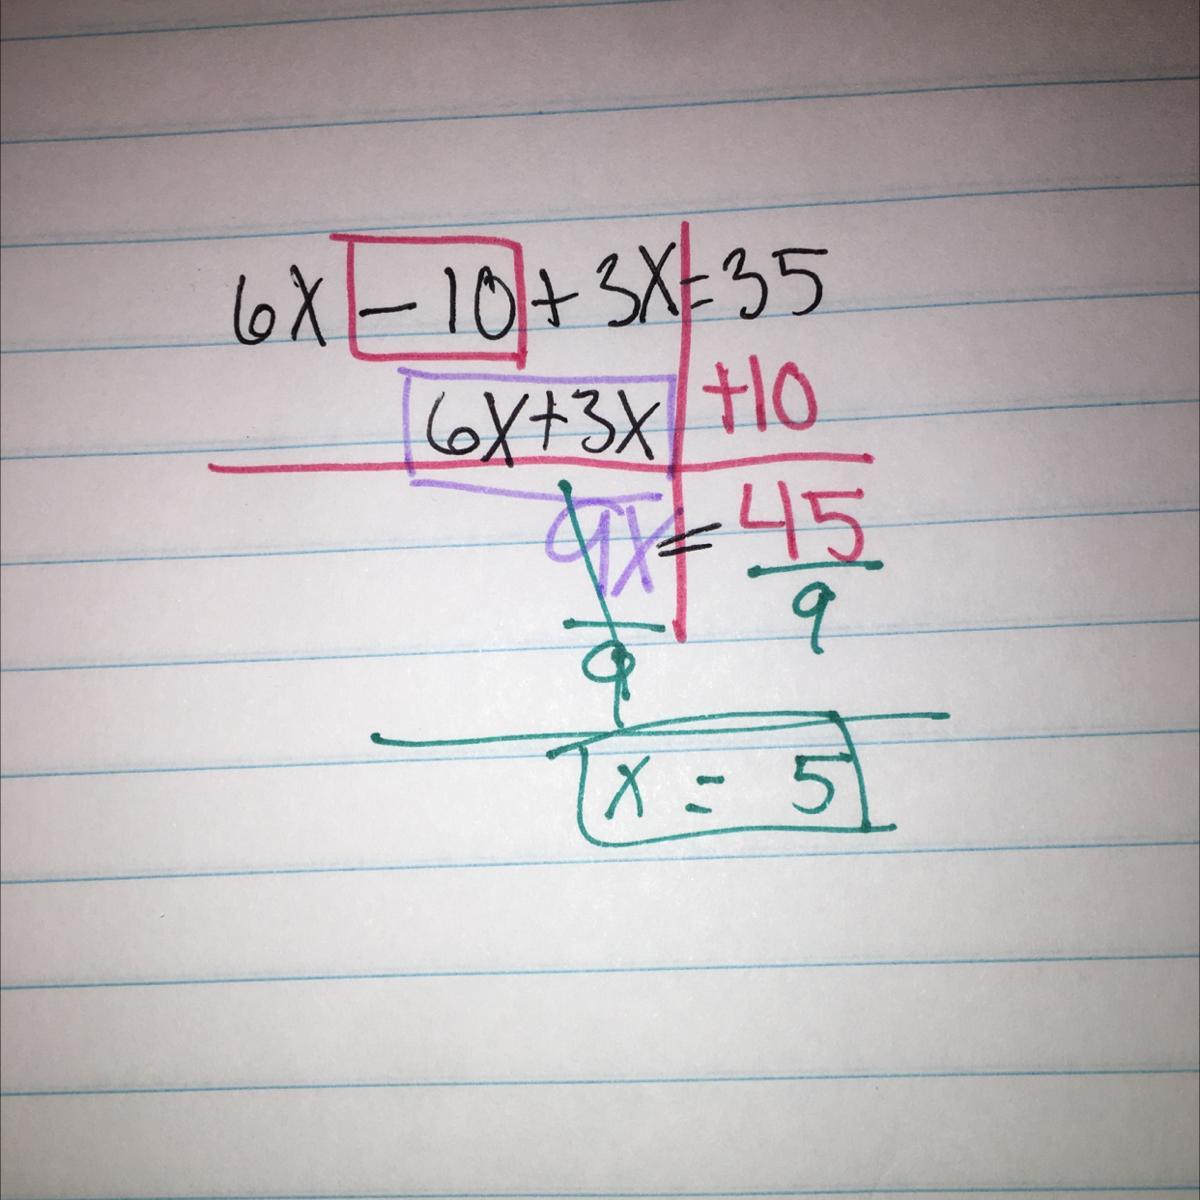 6x - 10 + 3x = 35
6x+3x +10
9x = 45
9 9
x = 5